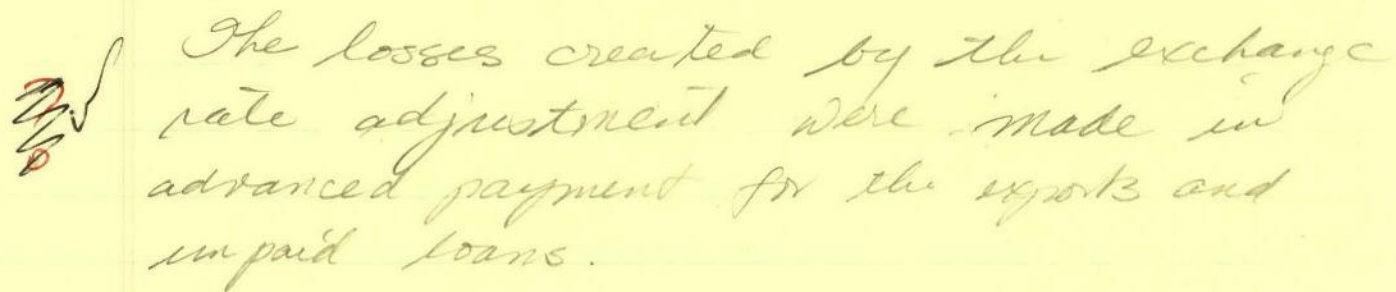 The losses created by the exchange
rate adjustment were made in
advanced payment for the exports and
unpaid loans.